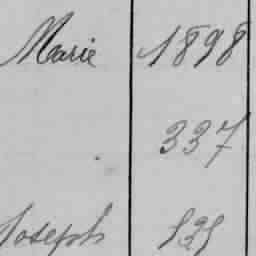 Marie 1898
337
Joseph